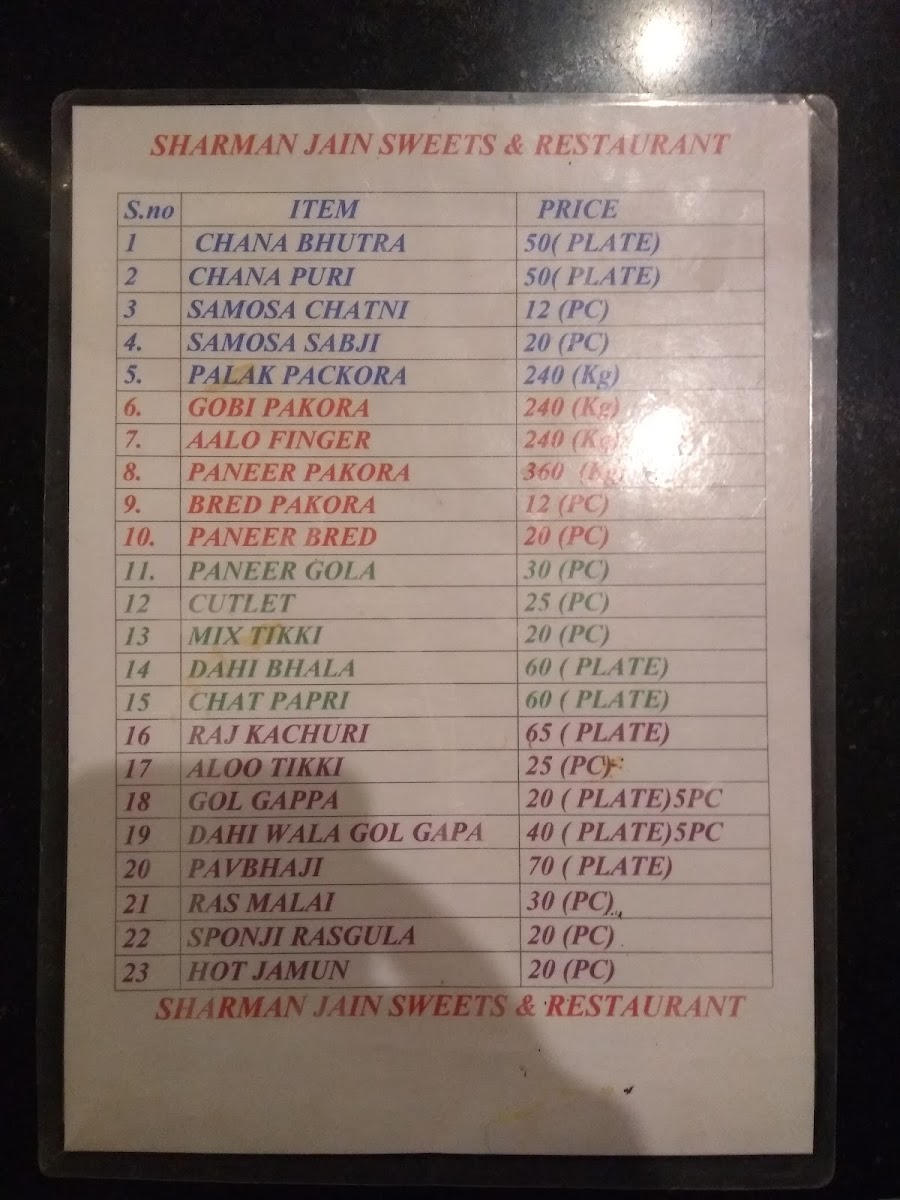 SHARMAN JAIN SWEETS & RESTAURANT
S.no ITEM PRICE
1 CHANA BHUTRA 50( PLATE)
2 CHANA PURI 50( PLATE)
3 SAMOSA CHATNI 12 (PC)
4. SAMOSA SABJI 20 (PC)
5. PALAK PACKORA 240 (Kg)
6. GOBI PAKORA 240 (Kg)
7. AALO FINGER 240 (Kg)
8. PANEER PAKORA 360 (Kg)
9. BRED PAKORA 12 (PC)
10. PANEER BRED 20 (PC)
11. PANEER GOLA 30 (PC)
12 CUTLET 25 (PC)
13 MIX TIKKI 20 (PC)
14 DAHI BHALA 60 ( PLATE)
15 CHAT PAPRI 60 ( PLATE)
16 RAJ KACHURI 65 ( PLATE)
17 ALOO TIKKI 25 (PC)
18 GOL GAPPA 20 ( PLATE)5PC
19 DAHI WALA GOL GAPA 40 ( PLATE)5PC
20 PAVBHAJI 70 ( PLATE)
21 RAS MALAI 30 (PC)
22 SPONJI RASGULA 20 (PC)
23 HOT JAMUN 20 (PC)
SHARMAN JAIN SWEETS & RESTAURANT